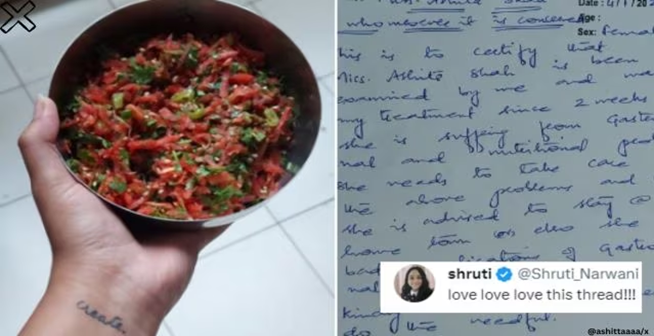 create
Date: 4/1/20
whomsoever it is concerned
Age:
Sex: Female
his is to certify that
Mics. Ashita Shah is been
examined by me and
my treatment since 2 weeks
she is suffering from Gastro
nal and nutritional
She needs to take care
the above problems and
she is advised to stay @
home town or else she
Gastro
do the needful.
shruti @Shruti_Narwani
love love love this thread!!!
@ashittaaaa/x